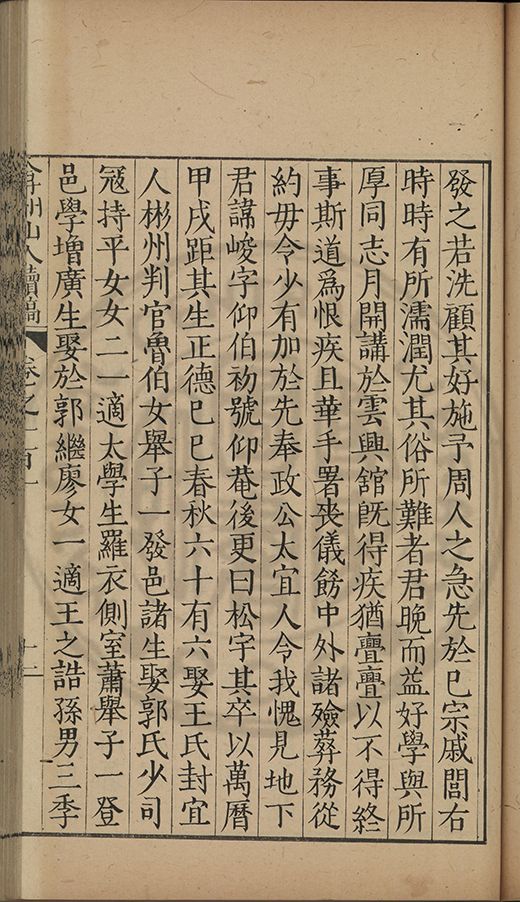 發之若洗顧其好施予周人之急先於巳宗戚閭右
時時有所濡潤尤其俗所難者君晚而益好學與所
厚同志月開講於雲興舘旣得疾猶亹亹以不得終
事斯道爲恨疾且華手署喪儀餝中外諸殮葬務從
約毋令少有加於先奉政公太宜人令我愧見地下
君諱峻字仰伯初號仰菴後更曰松宇其卒以萬曆
甲戌距其生正德巳巳春秋六十有六娶王氏封宜
人彬州判官魯伯女舉子一發邑諸生娶郭氏少司
冦持平女女二一適太學生羅衣側室蕭舉子一登
邑學增廣生娶於郭繼廖女一適王之誥孫男三季
弇州山人續稿 卷之一百一 十二